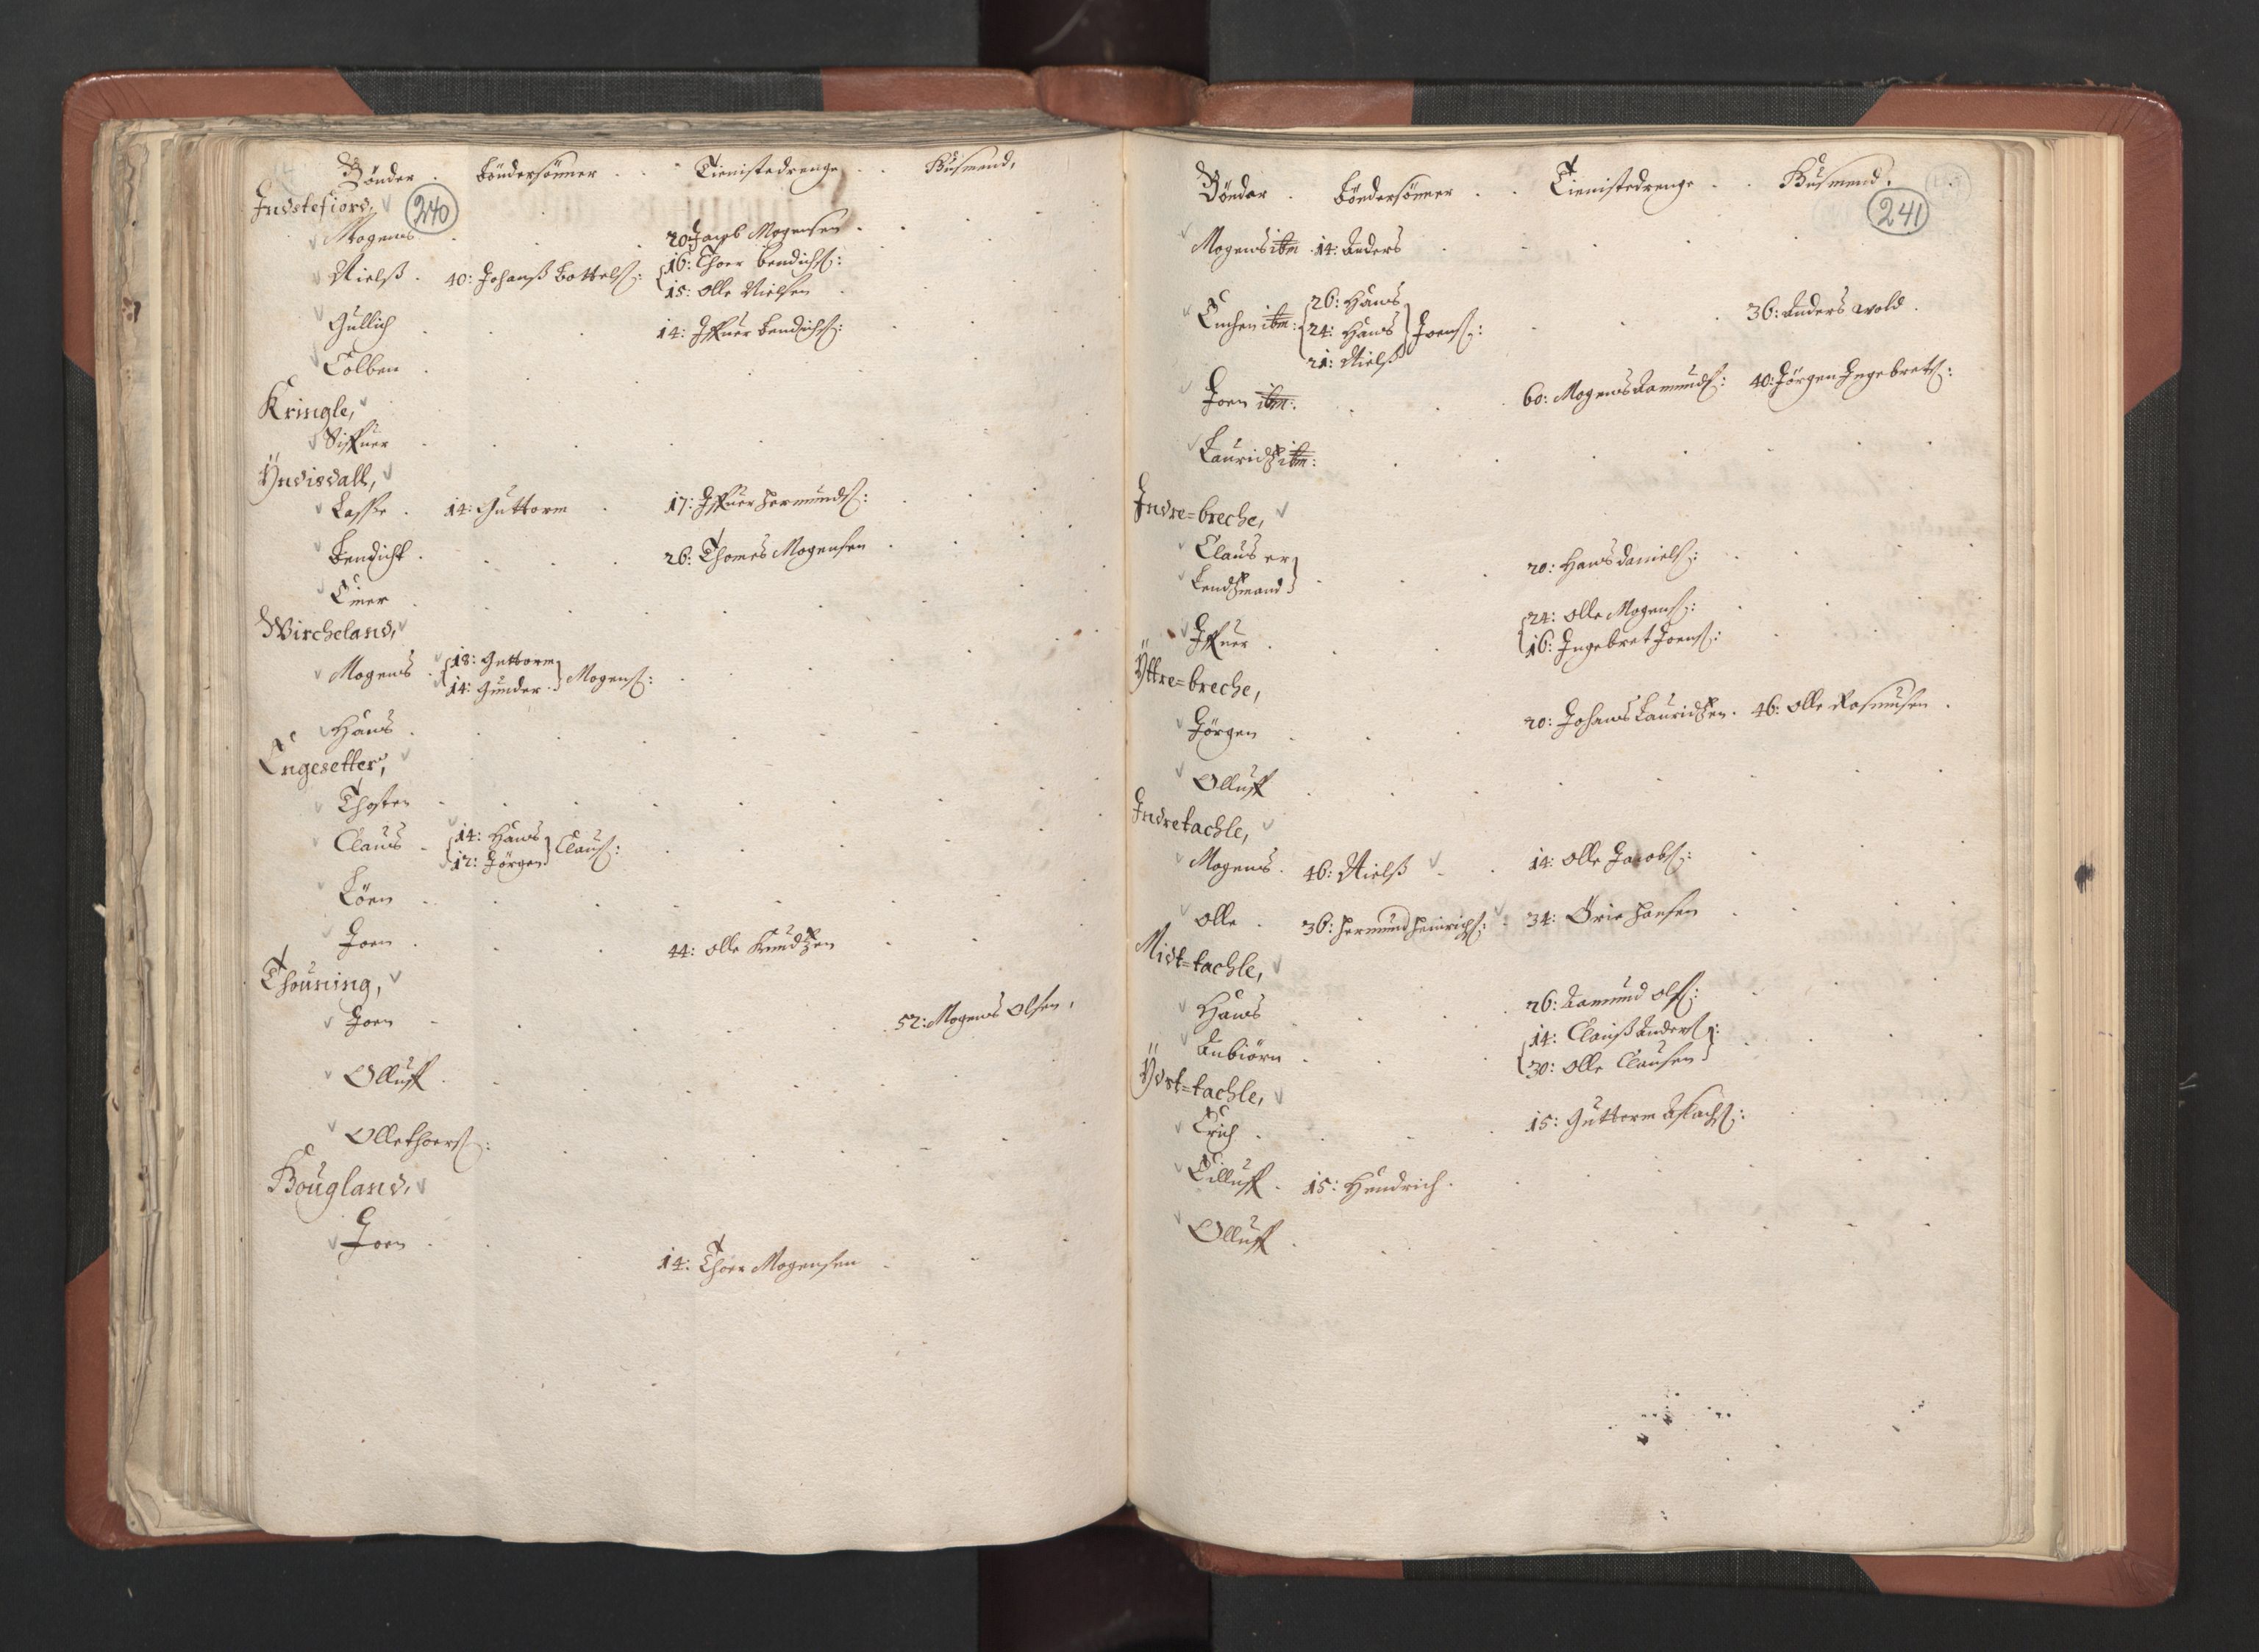 Bönder . Böndersönner . . Tienistedrenge . . Husmend,
Indstefiord, 240
Mogens . 20: Jacob Mogensen .
Nielß . 40: Johanß Bottels: 16: Thoer Bendichs:
15: Olle Nielsen
Gullich . 14: Iffuer Bendichs:
Tolben .
Kringle,
Siffuer
Yndisdall,
Lasse . 14: Guttorm . 17: Iffuer Hermunds:
Bendicht . 26: Thomes Mogensen
Einer
Wircheland,
Mogens . 18: Guttorm
14: Gunder . Mogens:
Hans .
Engesetter,
Thosten
Claus . 14: Hans
12: Jörgen Claus:
Töen
Joen . 44: Olle Knudtzen
Thouning,
Joen . 52: Mogens Olsen,
Olluff .
Olle Thoers:
Hougland,
Joen . 14: Thoer Mogensen
Bönder . Böndersönner . . Tienistedrenge . . Husmend,
241
Mogens ibm . 14: Anders
Enchen ibm: 26: Hans
24: Hans Joens: 36: Anders wold .
21: Nielß
Joen ibm: 60: Mogens Aamunds: 40: Jörgen Ingebrets:
Lauridtz ibm:
Indre=breche,
Claus er
Lendtzmand 20: Hans Daniels:
Iffuer . 24: Olle Mogens:
16: Ingebret Joens:
Yttre=breche,
Jörgen 20: Johans Lauridtzen . 46: Olle Rasmusen .
Olluff
Indretachle,
Mogens . 46: Nielß . 14: Olle Jacobs:
Olle . 36: Hermund Heinrichs: 34: Örie Hansen
Midt=tachle,
Hans 26: Aamund Ols:
Anbiörn . 14: Clauß Anders:
30: Olle Clausen
Ydst=tachle,
Erich . 15: Guttorm Aslachs:
Eilluff . 15: Hendrich .
Olluff .